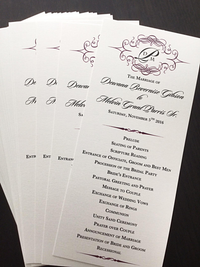 P
The Marriage of
Dawana Bovernise Gibson
to
Melvin Grant Parris Sr.
Saturday, November 5th 2016
Prelude
Seating of Parents
Scripture Reading
Entrance of Officiate, Groom and Best Men
Procession of the Bridal Party
Bride's Entrance
Pastoral Greeting and Prayer
Message to Couple
Exchange of Wedding Vows
Exchange of Rings
Communion
Unity Sand Ceremony
Prayer over Couple
Announcement of Marriage
Presentation of Bride and Groom
Recessional